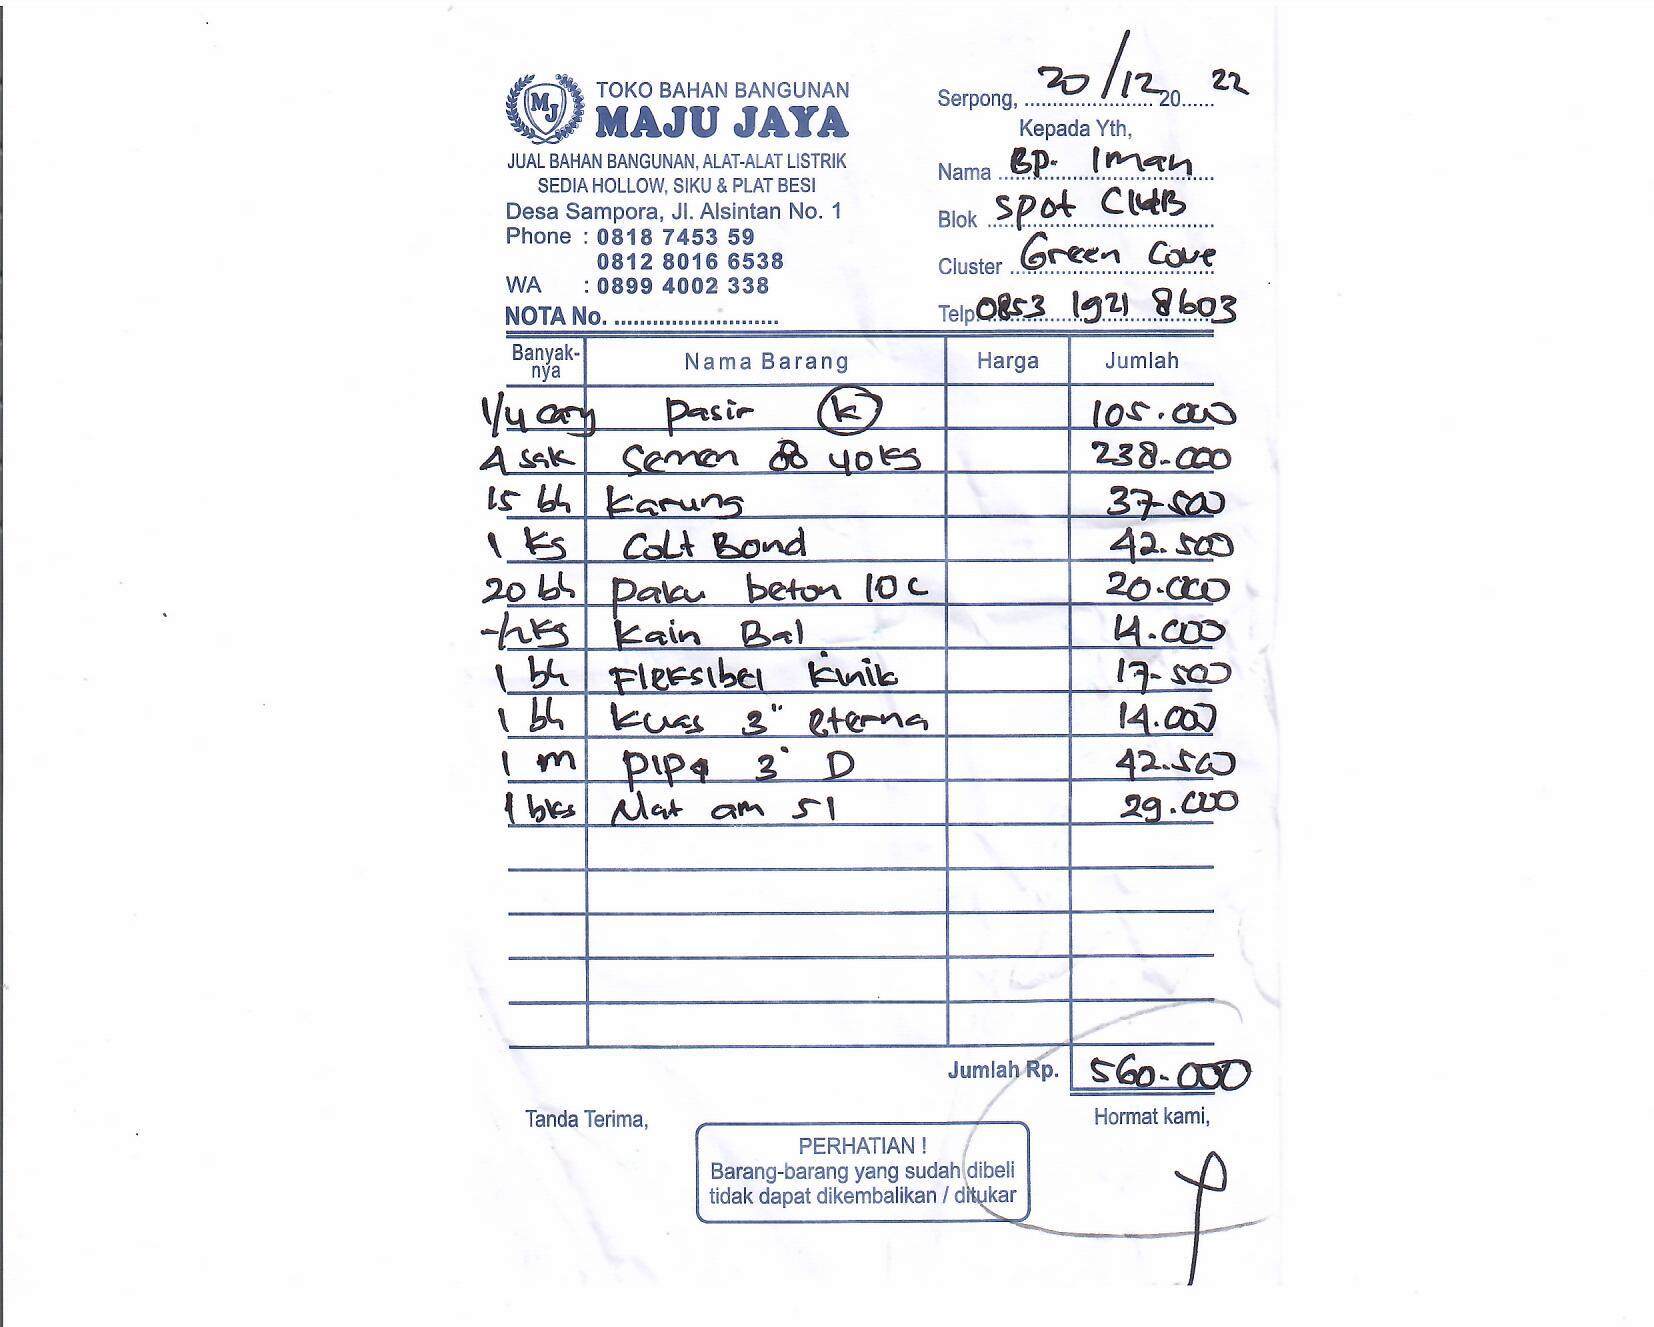 MJ
TOKO BAHAN BANGUNAN
MAJU JAYA
JUAL BAHAN BANGUNAN, ALAT-ALAT LISTRIK
SEDIA HOLLOW, SIKU & PLAT BESI
Desa Sampora, Jl. Alsintan No. 1
Phone : 0818 7453 59
0812 8016 6538
WA : 0899 4002 338
NOTA No. ..........................
Serpong, 20/12 20 22
Kepada Yth,
Nama Bp. Iman
Blok Spot Club
Cluster Green Cove
Telp. 0853 1921 8603
Banyak-nya Nama Barang Harga Jumlah
1/4 cary Pasir K 105.000
4 sak Semen 40 kg 238.000
15 bh Karung 37.500
1 kg Colt Bond 42.500
20 bh Paku beton 10 C 20.000
1/2 kg Kain Bal 14.000
1 bh Fleksibel 17.500
1 bh Kuas 3" eterna 14.000
1 m Pipa 3" D 42.500
1 bks Nat am 51 29.000
Jumlah Rp. 560.000
Tanda Terima,
Hormat kami,
PERHATIAN !
Barang-barang yang sudah dibeli
tidak dapat dikembalikan / ditukar